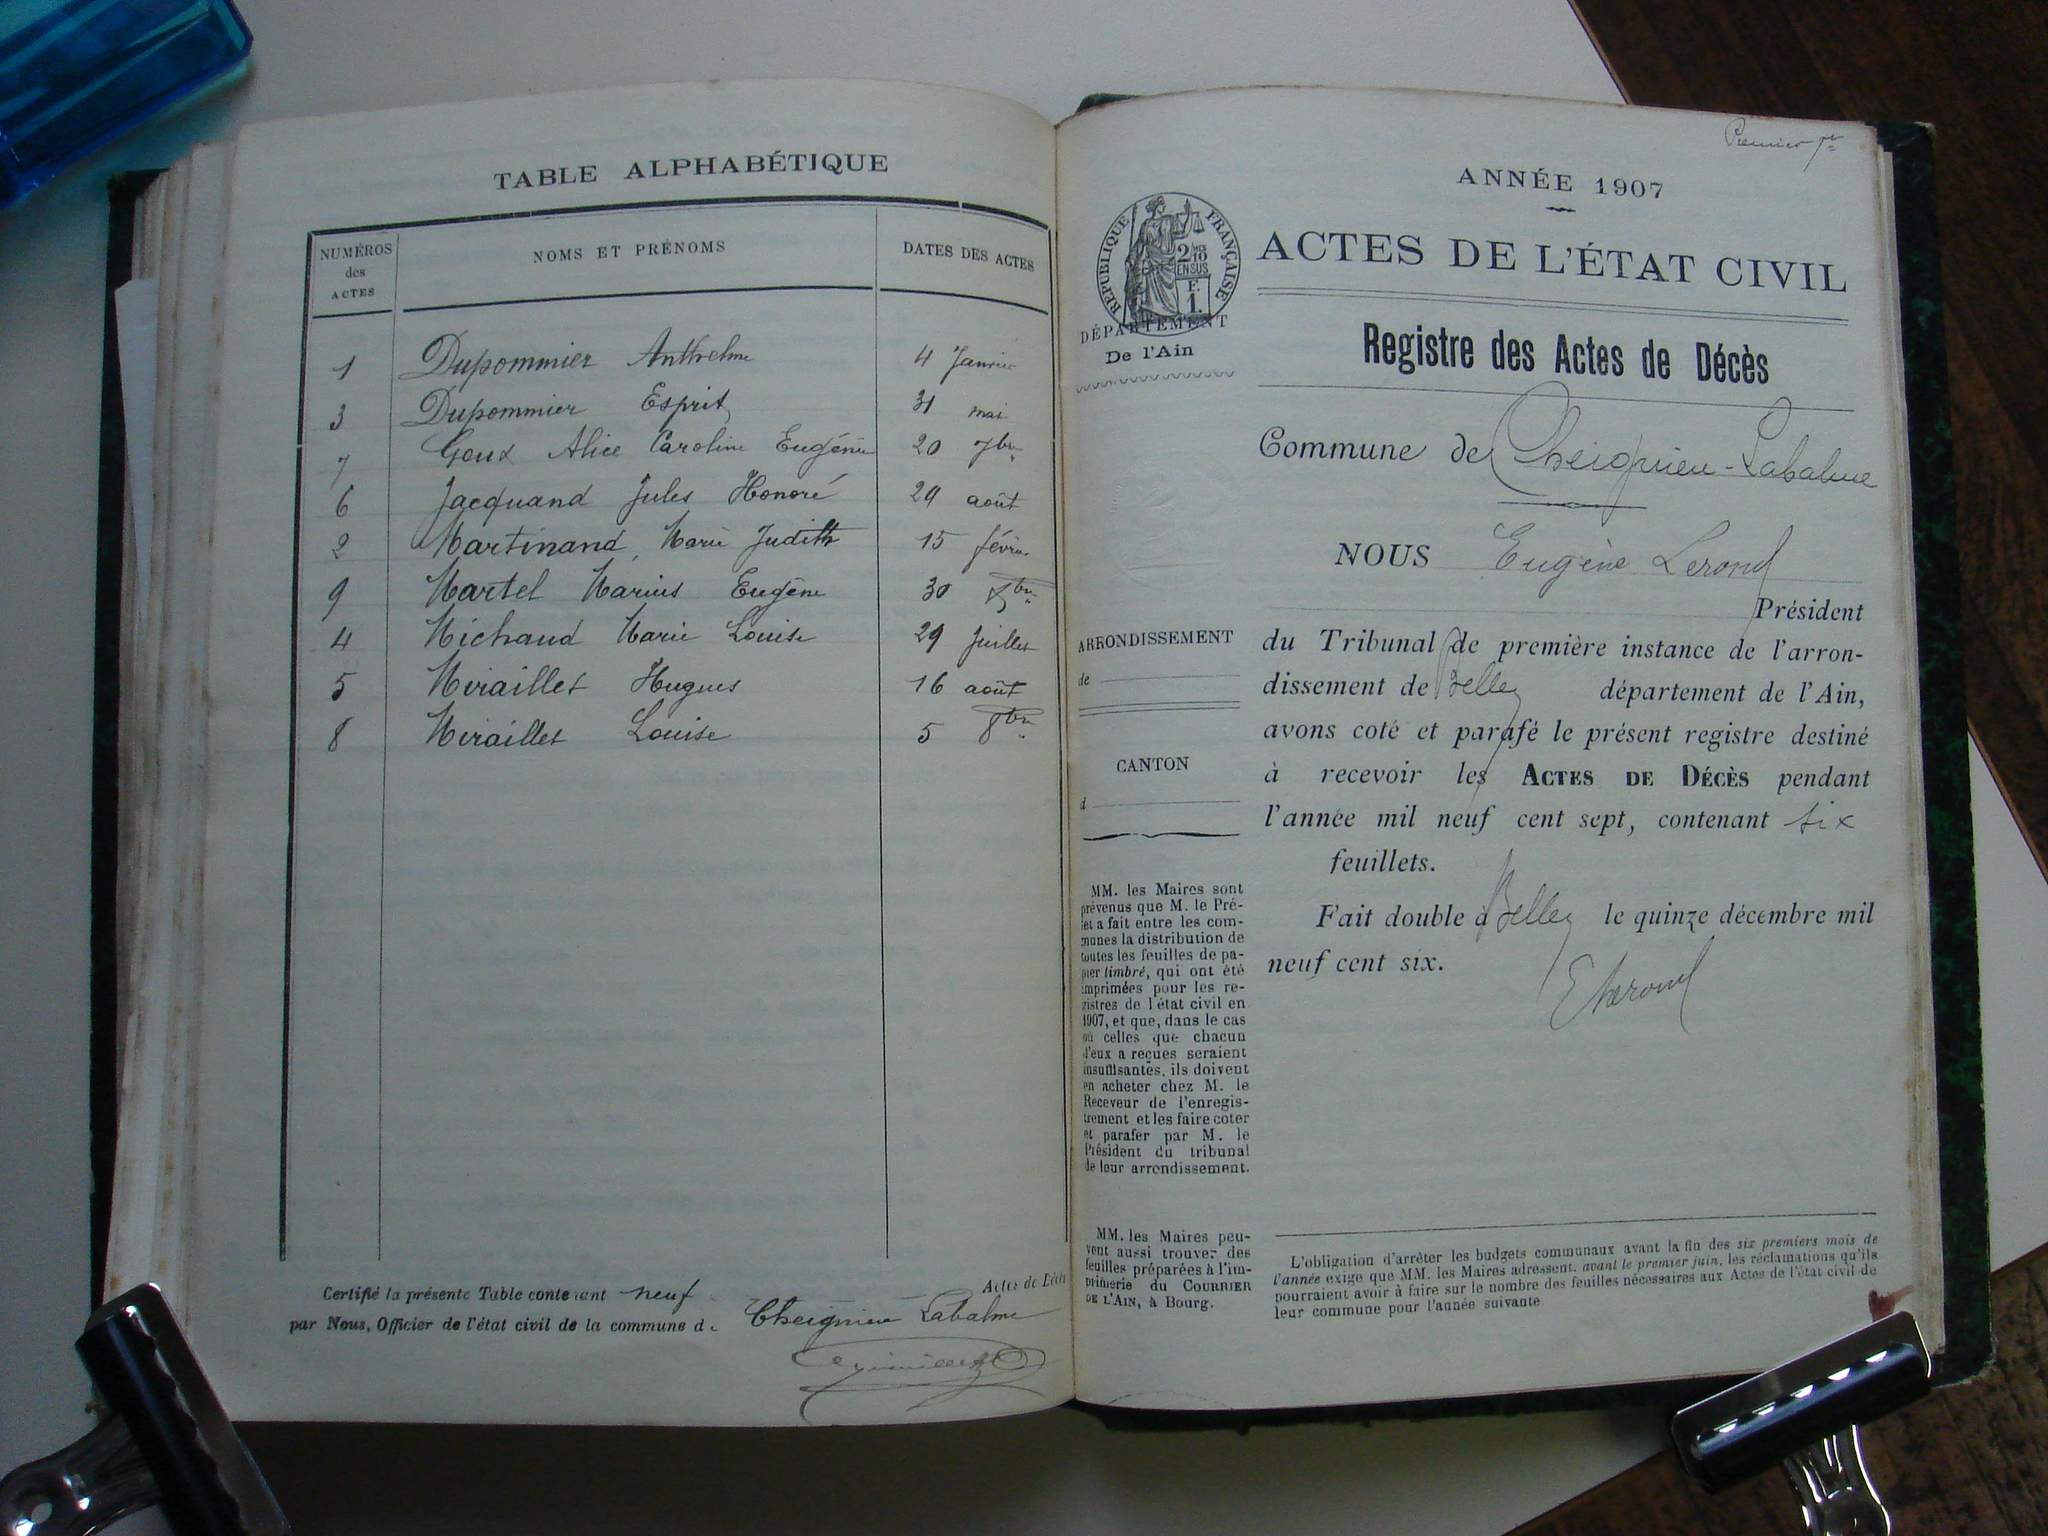 TABLE ALPHABÉTIQUE
NUMÉROS des ACTES NOMS ET PRÉNOMS DATES DES ACTES
1 Dupommier Anthelme 4 Janvier
3 Dupommier Esprit 31 mai
7 Goux Alice Caroline Eugénie 20 7bre
6 Jacquand Jules Honoré 29 août
2 Martinand, Marie Judith 15 février
9 Martel Marius Eugène 30 Xbre
4 Michaud Marie Louise 29 Juillet
5 Miraillet Hugues 16 août
8 Miraillet Louise 5 8bre
Actes de Décès
Certifié la présente Table contenant neuf
par Nous, Officier de l'état civil de la commune de Cheignieu Labalme
Premier
ANNÉE 1907
RÉPUBLIQUE FRANÇAISE
2/10 EN SUS
F. 1.
ACTES DE L'ÉTAT CIVIL
DÉPARTEMENT
De l'Ain
Registre des Actes de Décès
Commune de Cheignieu-Labalme
NOUS Eugène Lerond
Président
du Tribunal de première instance de l'arron-
dissement de Belley département de l'Ain,
avons coté et parafé le présent registre destiné
à recevoir les ACTES DE DÉCÈS pendant
l'année mil neuf cent sept, contenant six
feuillets.
Fait double à Belley le quinze décembre mil
neuf cent six.
ELerond
ARRONDISSEMENT
de
CANTON
d
MM. les Maires sont
prévenus que M. le Pré-
fet a fait entre les com-
munes la distribution de
toutes les feuilles de pa-
pier timbré, qui ont été
imprimées pour les re-
gistres de l'état civil en
1907, et que, dans le cas
où celles que chacun
d'eux a reçues seraient
insuffisantes, ils doivent
en acheter chez M. le
Receveur de l'enregis-
trement et les faire coter
et parafer par M. le
Président du tribunal
de leur arrondissement.
MM. les Maires peu-
vent aussi trouver des
feuilles préparées à l'im-
primerie du COURRIER
DE L'AIN, à Bourg.
L'obligation d'arrêter les budgets communaux avant la fin des six premiers mois de
l'année exige que MM. les Maires adressent, avant le premier juin, les réclamations qu'ils
pourraient avoir à faire sur le nombre des feuilles nécessaires aux Actes de l'état civil de
leur commune pour l'année suivante.